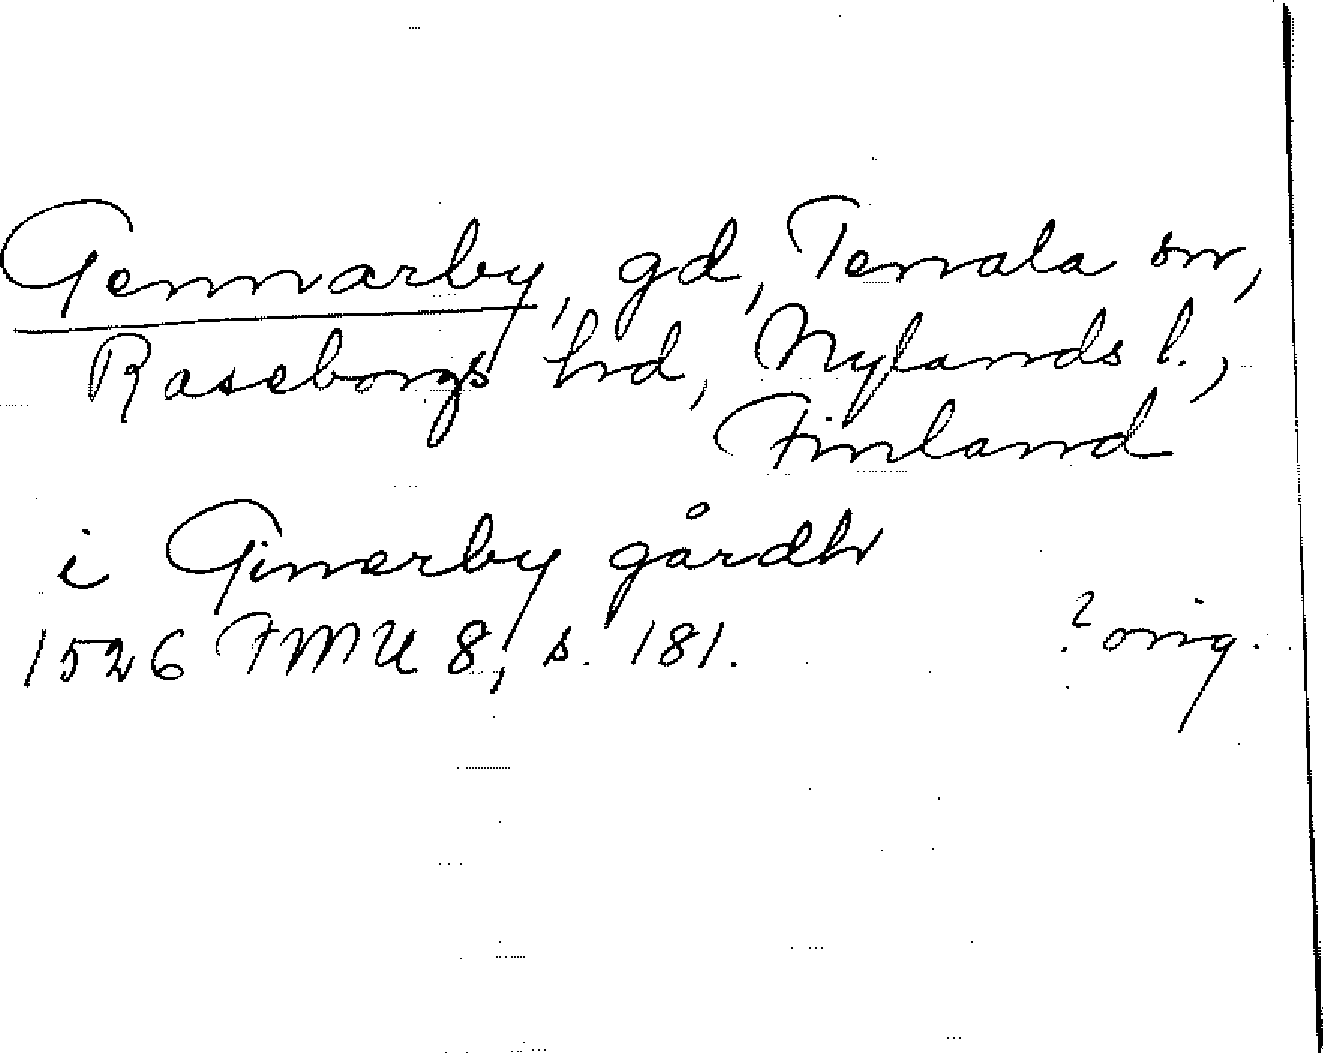 Gennarby, gd, Tenala sn,
Raseborgs hrd, Nylands l.,
Finland
i Ginnerby gårdh
1526 FMU 8, s. 181. ? orig.